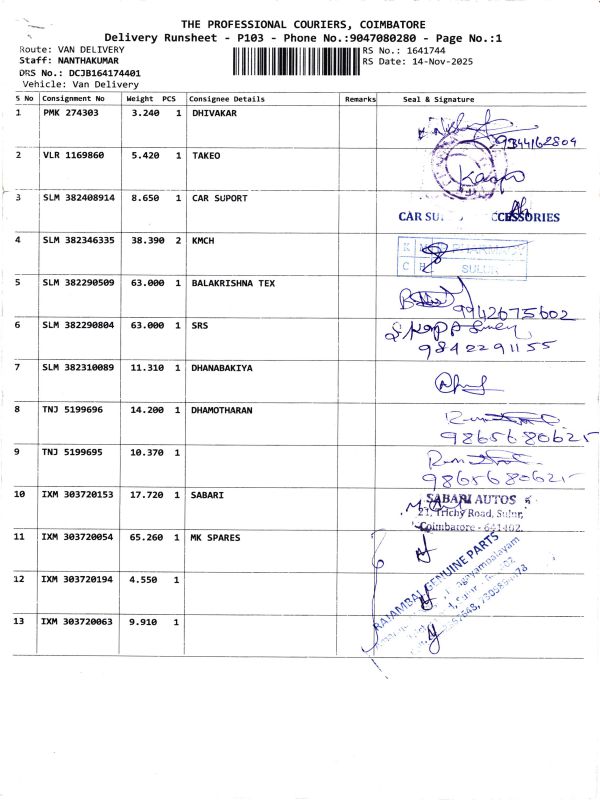 THE PROFESSIONAL COURIERS, COIMBATORE
Delivery Runsheet - P103 - Phone No.:9047080280 - Page No.:1
Route: VAN DELIVERY RS No.: 1641744
Staff: NANTHAKUMAR RS Date: 14-Nov-2025
DRS No.: DCJB164174401
Vehicle: Van Delivery
S No Consignment No Weight PCS Consignee Details Remarks Seal & Signature
1 PMK 274303 3.240 1 DHIVAKAR
9344162804
2 VLR 1169860 5.420 1 TAKEO
3 SLM 382408914 8.650 1 CAR SUPORT
CAR ACCESSORIES
4 SLM 382346335 38.390 2 KMCH
K M PHARMACY
C H SULUR
5 SLM 382290509 63.000 1 BALAKRISHNA TEX
9942675602
6 SLM 382290804 63.000 1 SRS
9842291155
7 SLM 382310089 11.310 1 DHANABAKIYA
8 TNJ 5199696 14.200 1 DHAMOTHARAN
9865680625
9 TNJ 5199695 10.370 1
9865680625
10 IXM 303720153 17.720 1 SABARI
SABARI AUTOS
21, Trichy Road, Sulur,
Coimbatore - 641402.
11 IXM 303720054 65.260 1 MK SPARES
RAJAMBAL GENUINE PARTS
12 IXM 303720194 4.550 1
13 IXM 303720063 9.910 1